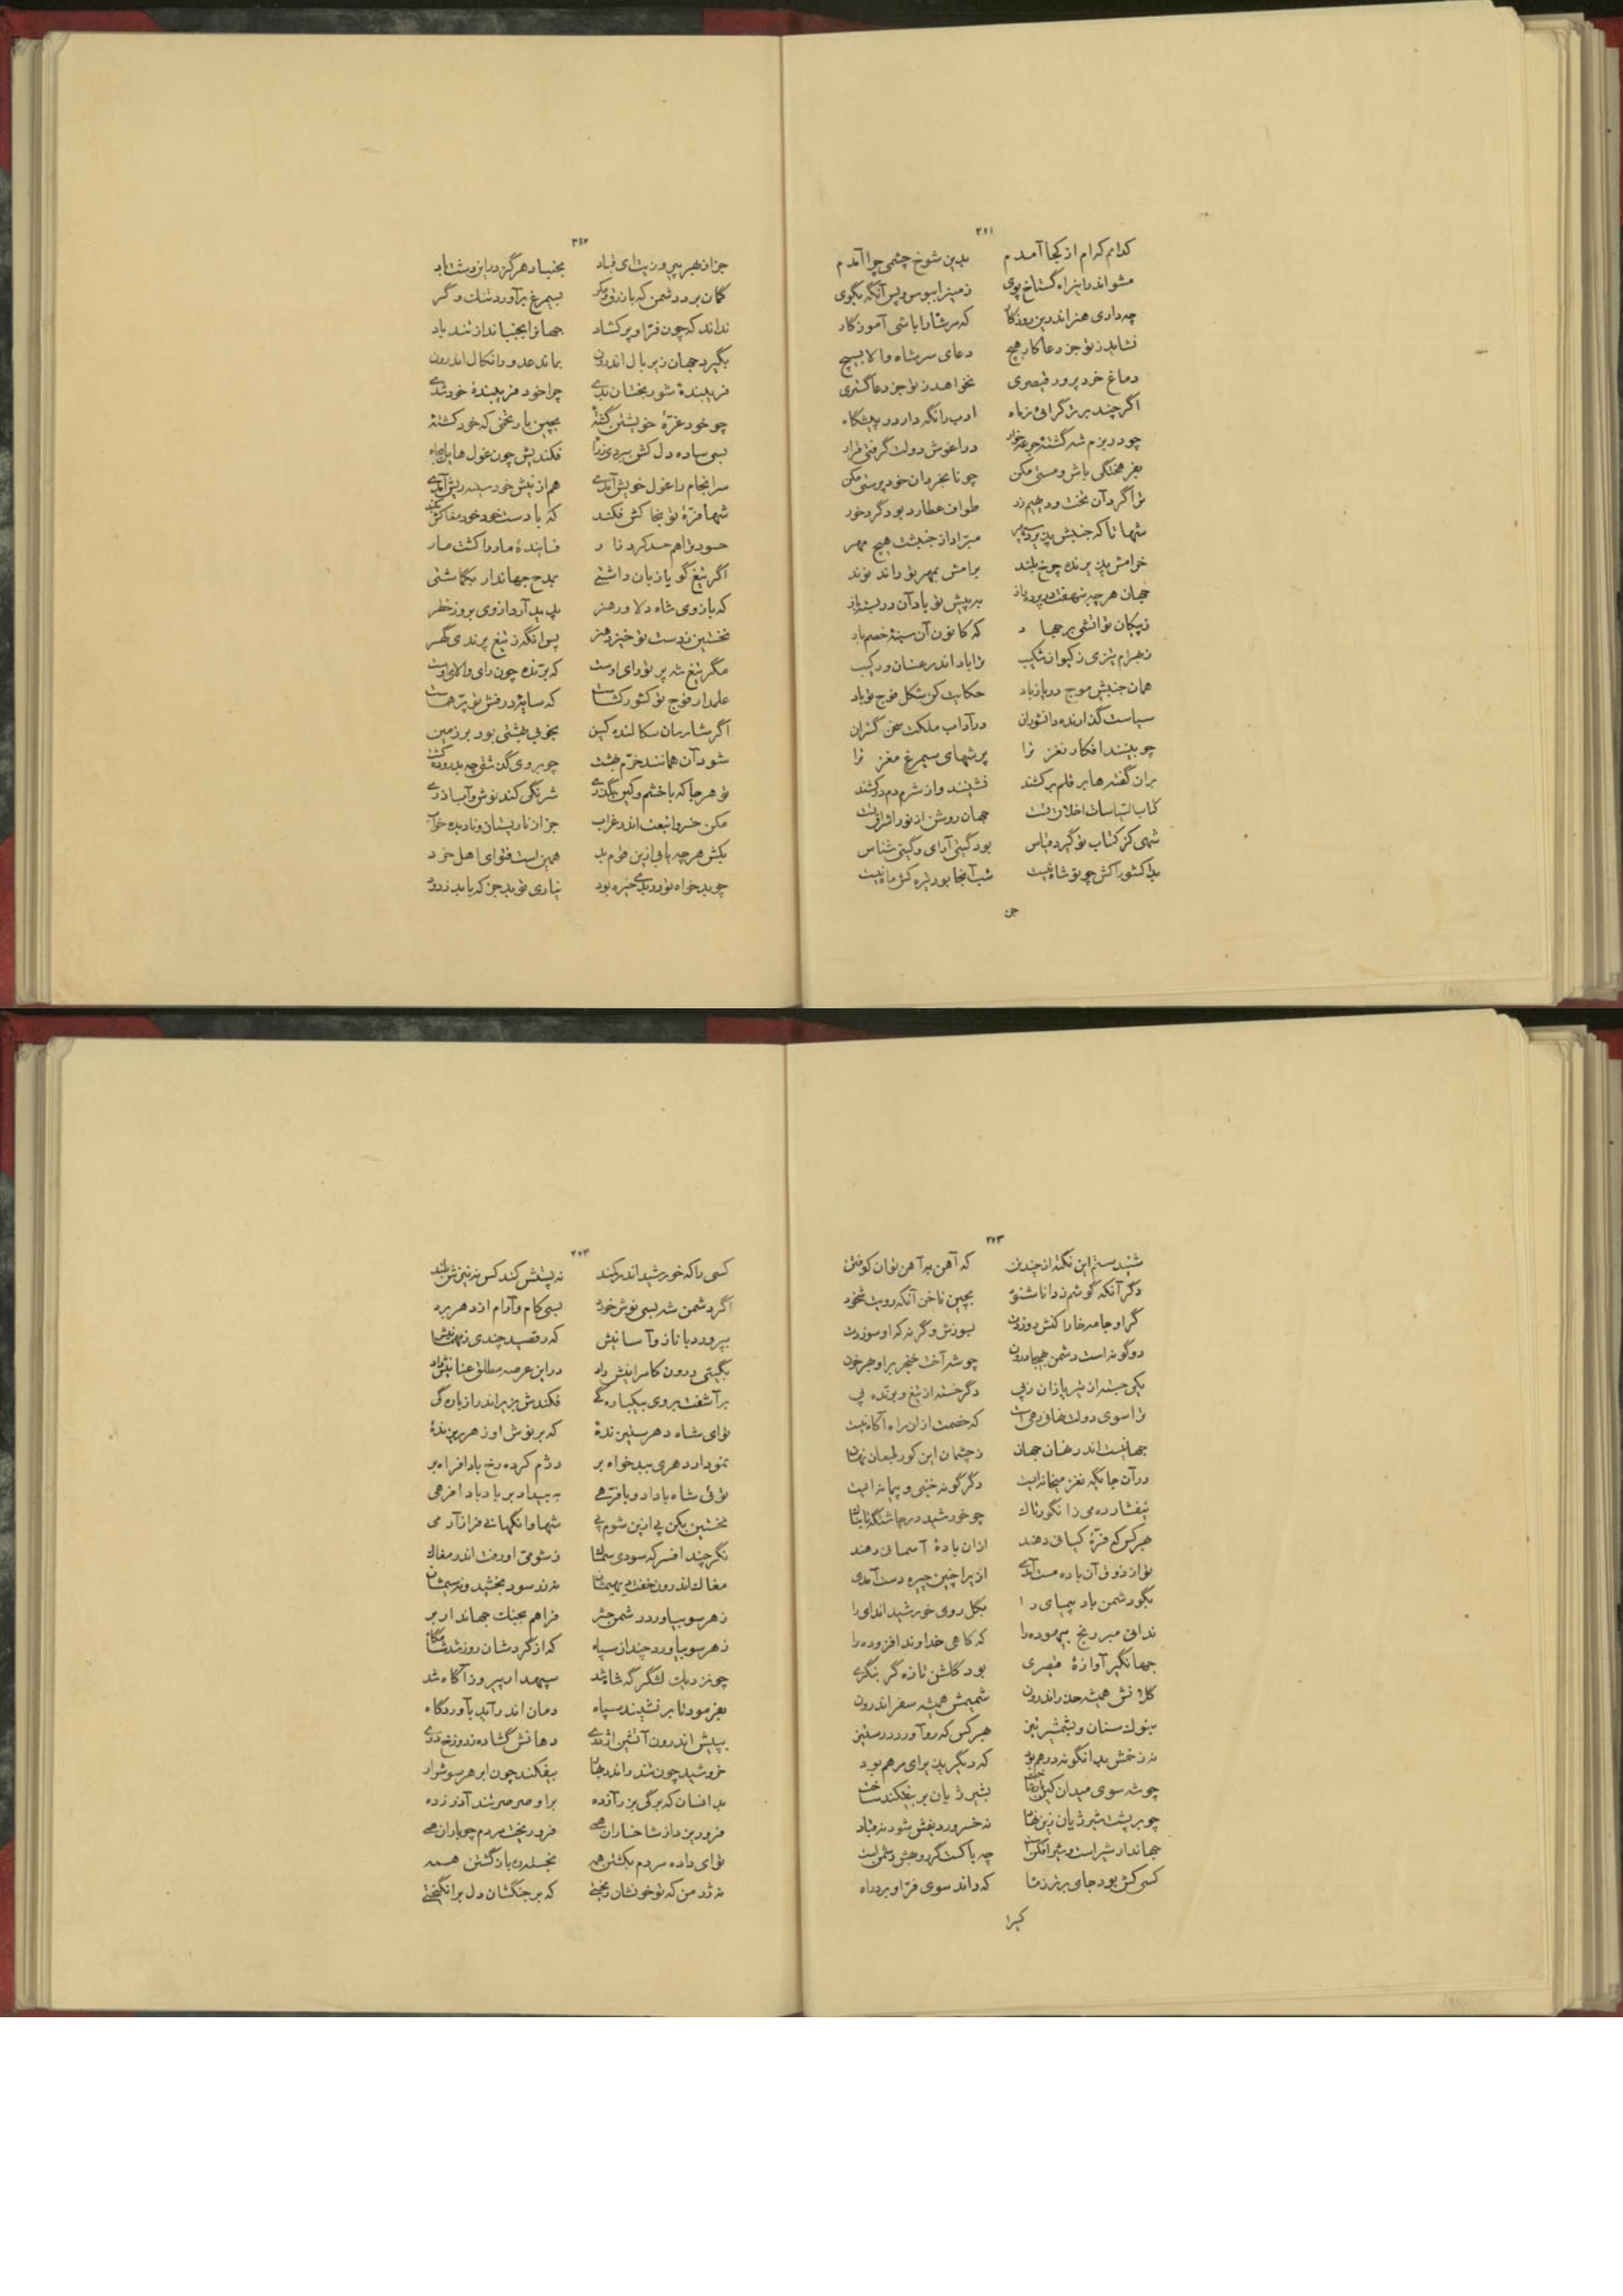 ۳۶۱
کدامم که‌ام از کجا آمدم بدین شوخ چشمی چرا آمدم
مشو اندر این راه گستاخ پوی زمین را ببوس و پس آنگه بگوی
چه داری هنر اندرین روزگار که مر شاه را باشی آموزگار
نشاید ز تو جز دعا کار هیچ دعای سر شاه والا بسیچ
دماغ خرد پرور قیصری نخواهد ز تو جز دعا گستری
اگر چند برتر گرائی ز ماه ادب را نگه دار در پیشگاه
چو در بزم شه گشتهٔ جرعه خوار در آغوش دولت گرفتی قرار
بفرهختگی باش و مستی مکن چو نابخردان خودپرستی مکن
ترا گرد آن تخت و دیهیم زر طواف عطارد بود گرد خور
شها تا که جنبش پذیرد سپهر مبرا از جنبشت هیچ مهر
خرامش پذیرنده چرخ بلند برامش بمهر تو راند نوند
جهان هرچه بنهفت در پرده باز به پیش تو باد آن در بسته باز
ز پیکان تو آتشی برجهاد که کانون آن سینهٔ خصم باد
ز بهرام تیزی ز کیوان شکیب ترا باد اندر عنان و رکیب
همان جنبش موج دریا زیاد حکایت کن شکل فوج تو باد
سیاست گذارنده دانشوران در آداب ملکت سخن گستران
چو بینند افکار نغز ترا پرشهای سیمرغ مغز ترا
بران گفته‌ها بر قلم برکشند نشینند و از شرم دم درکشند
کتاب السیاسات اخلاق تست جهان روشن از نور اشراق تست
شهی کز کتاب تو گیرد قیاس بود گیتی آرای و گیتی شناس
بدا کشورا کش چو تو شاه نیست شب آنجا بود تیره کش ماه نیست
جز
۳۶۲
جز از هجر پیروزیت ای قباد بجنباد هرگز در این دشت باد
گمان برد دشمن که با زرق و مکر بسیمرغ برآورد تنگ وکر
نداند که چون فر او پر گشاد جهان را بجنباند از تند باد
بگیرد جهان زیر بال اندرون بماند عدو در نکال اندرون
فریبندهٔ شوربختان بدی چرا خود فریبندهٔ خود شدی
چو خود غرهٔ خویشتن گشتهٔ بچین بار تخمی که خود کشتهٔ
بسی ساده دل کش ببردی ز راه فکندیش چون غول هایل بچاه
سرانجام را غول خویش آمدی هم از نیش خود سینه ریش آمدی
شها فرهٔ تو بخاکش فکند که با دست خود خود مغاکش بکند
حسود ترا هم حسد کرد خوار فسایندهٔ مار را کشت مار
اگر تیغ گویا زبان داشتی بمدح جهاندار بگماشتی
که بازوی شاه دلاور هنر پدید آرد از وی بروز خطر
نخستین ز دست تو خیزد هنر پس آنگه ز تیغ پرندی گهر
مگر تیغ شه پرتو رای اوست که برنده چون رای والای اوست
علمدار فوج تو کشور گشاست که سایهٔ درفش تو پر هماست
اگر شارسان سکالنده کین بخوبی بهشتی بود بر زمین
شود آن همانند خرم بهشت چو بر وی گذشتی چه بدرود کشت
تو هر جا که با خشم و کین بگذری شرنگی کند نوش و آب آذری
مکن خسروا تیغت اندر غراب جز از نارپستان و نادیده خواب
بکش هر چه یابی ازین قوم بد همین است فتوای اهل خرد
چو بدخواه تو دردی خیره بود نیاری تو بد جز که باید زدود
۳۶۳
شنیدستم این نکته از چند تن که آهن به آهن توان کوفتن
دگر آنکه گوشم ز دانا شنود بچین ناخن آنکه رویت شخود
گر او جامه خارا کنش دوزدت بسوزش وگرنه که او سوزدت
دو گونه است دشمن بهیجا درون چو شه آخت خنجر برو بهر خون
یکی جسته از تیر یازان ز پی دگر خسته از تیغ و برنده پی
ترا سوی دولت نهانی رهی است که خصمت از آن راه آگاه نیست
جهانیست اندر نهان جهان ز چشمان این کور طبعان نهان
در آن جایگه نغز میخانه ایست دگرگونه خنبی و پیمانه ایست
نیفشارده می ز انگور تاک چو خورشید در جاشنگه تابناک
بهر کس که فرهٔ کیانی دهند از آن بادهٔ آسمانی دهند
تو از ذوق آن باده مست آمدی از یرا چنین چیره دست آمدی
بگو دشمن باد پیمای را بگل روی خورشید اندای را
ندانی مبر رنج بیهوده را که کاهی خداوند افزوده را
جهانگیر آوازهٔ قیصری بود گلشن تازه گر بنگری
گل آتش همیشه حذر اندرون شمیمش همیشه سفر اندرون
بنوک سنان و بشمشیر تیز بهر کس که رو آورد در ستیز
نه زخمش بدانگونه درهم بود که دیگر پذیرای مرهم بود
چو شه سوی میدان کین اسب تاخت بشیر ژیان بر بیفکند ساخت
چو بر پشت شیر ژیان زین نهاد نه خسرو ردیفش شود نه قباد
جهاندار شیر است و شیر افکن است چه باکست گر وحش دشمن است
کسی کش بود جای بر نزد شاه که داند سوی فر او برد راه
کرا
۳۶۴
کسی را که خورشید اندر کند نه پستش کند کس نه نیزش بلند
اگر دشمن شه بسی نوش خورد بسی کام و آرام از دهر برد
بپرورد با ناز و آسانیش که رقصید چندی ز مهمانیش
بگیتی درون کامرانیش داد در این عرصه مطلق عنانیش داد
برآشفت بر وی بیکبارگی فکندش بزیر اندر از بارگی
توای شاه دهر ستیزندهٔ که بر نوش او زهر ریزندهٔ
نمودار دهری ببدخواه بر دژم کرده رخ باد افراه بر
توئی شاه باداد و با فرهی به بیداد بر باد باد افرهی
نخستین بکن پی از این شوم پی شها وانگهانی فراز آر می
نگر چند افسر که سودی بماه ز شومی او رفت اندر مغاک
مغاک اندرون خفت دیهیمشان نه زر سود بخشید و نه سیمشان
ز هر سو بیاورد دشمن حشر فراهم بجنگ جهاندار بر
ز هر سو بیاورد چندان سپاه که از گردشان روز شد شامگاه
چو نزدیک لشگرگه شاه شد سپهدار پیروز آگاه شد
بفرمود تا برنشیند سپاه دمان اندر آید بآوردگاه
بپیش اندرون آتشین اژدری دهانش گشاده ز دوزخ دری
خروشید چون تندر اندر هوا بیفکند چون ابر هر سو شرار
بدانسان که برگی بر آزده بر او صرصر تند آذر زده
فرو ریزد از شاخساران همی فرو ریخت مردم چو باران همی
توای داده مردم بکشتن همه بخسته‌دن باز گشتن همه
نه ژد من که تو خونشان ریختی که بر جنگشان دل برانگیختی